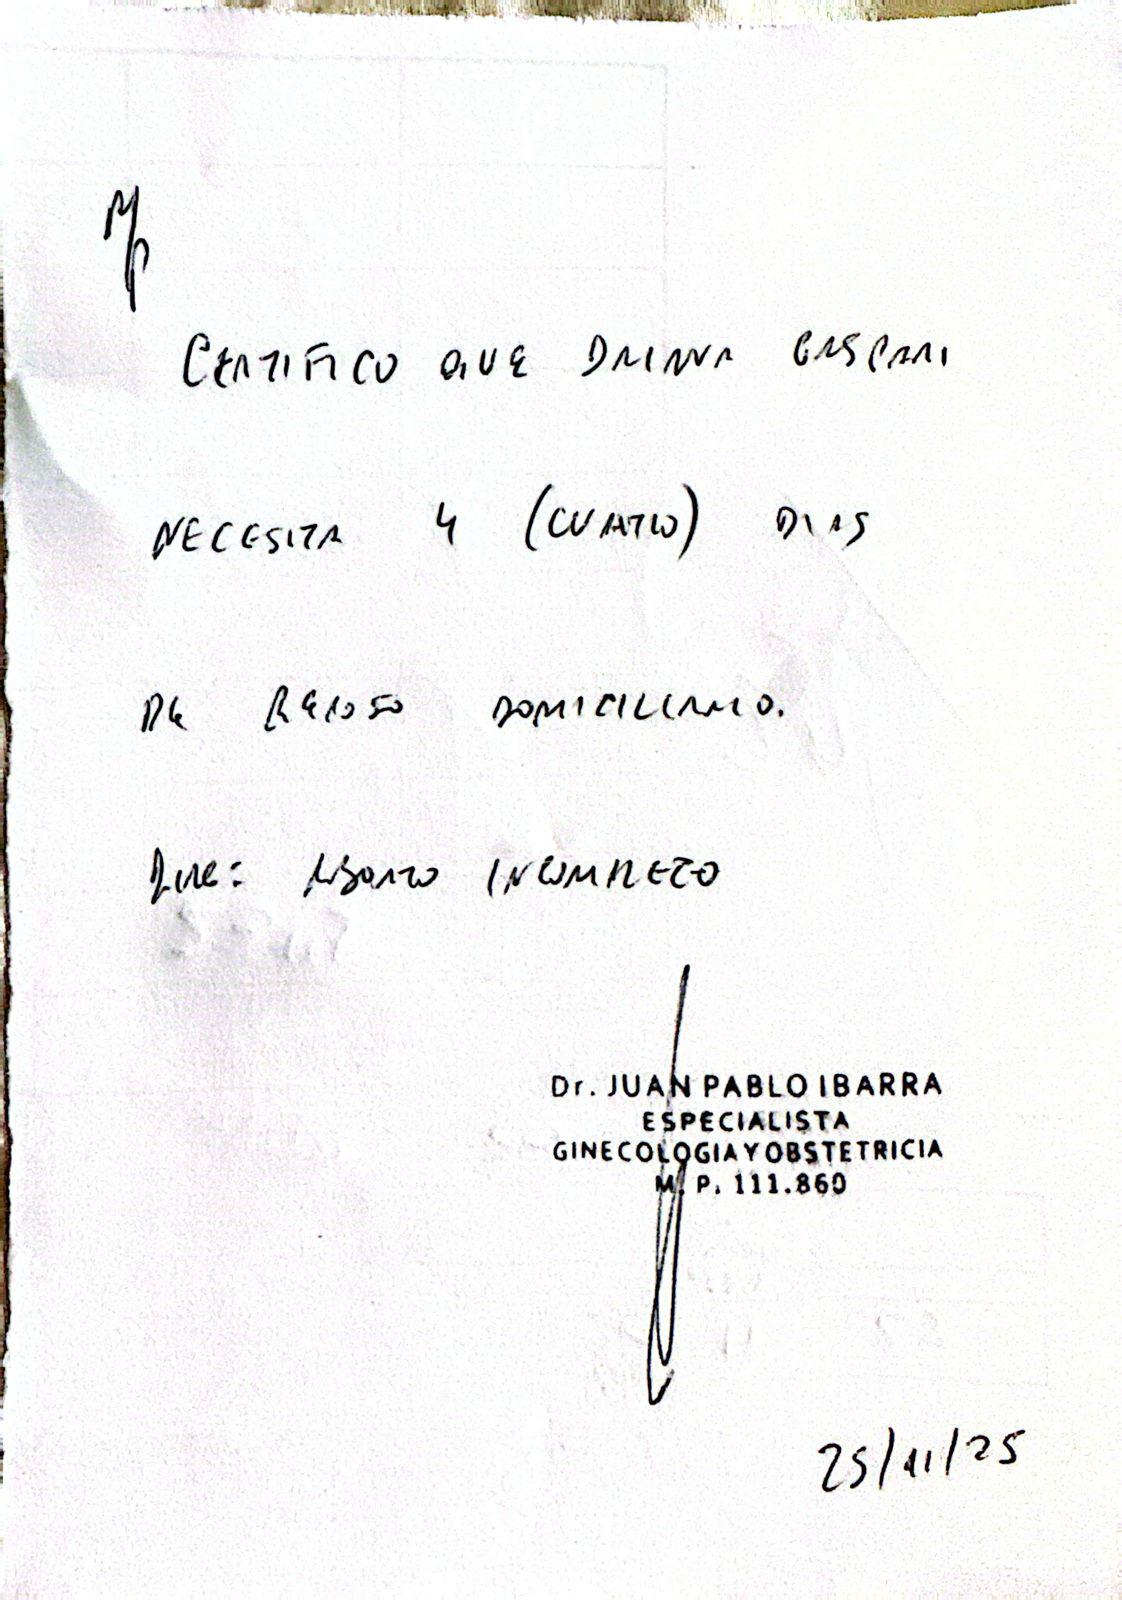 R/p
CERTIFICO QUE DAIANA GASPARI
NECESITA 4 (CUATRO) DIAS
DE REPOSO DOMICILIARIO.
DIAG: ABORTO INCOMPLETO
Dr. JUAN PABLO IBARRA
ESPECIALISTA
GINECOLOGIA Y OBSTETRICIA
M. P. 111.860
25/11/25